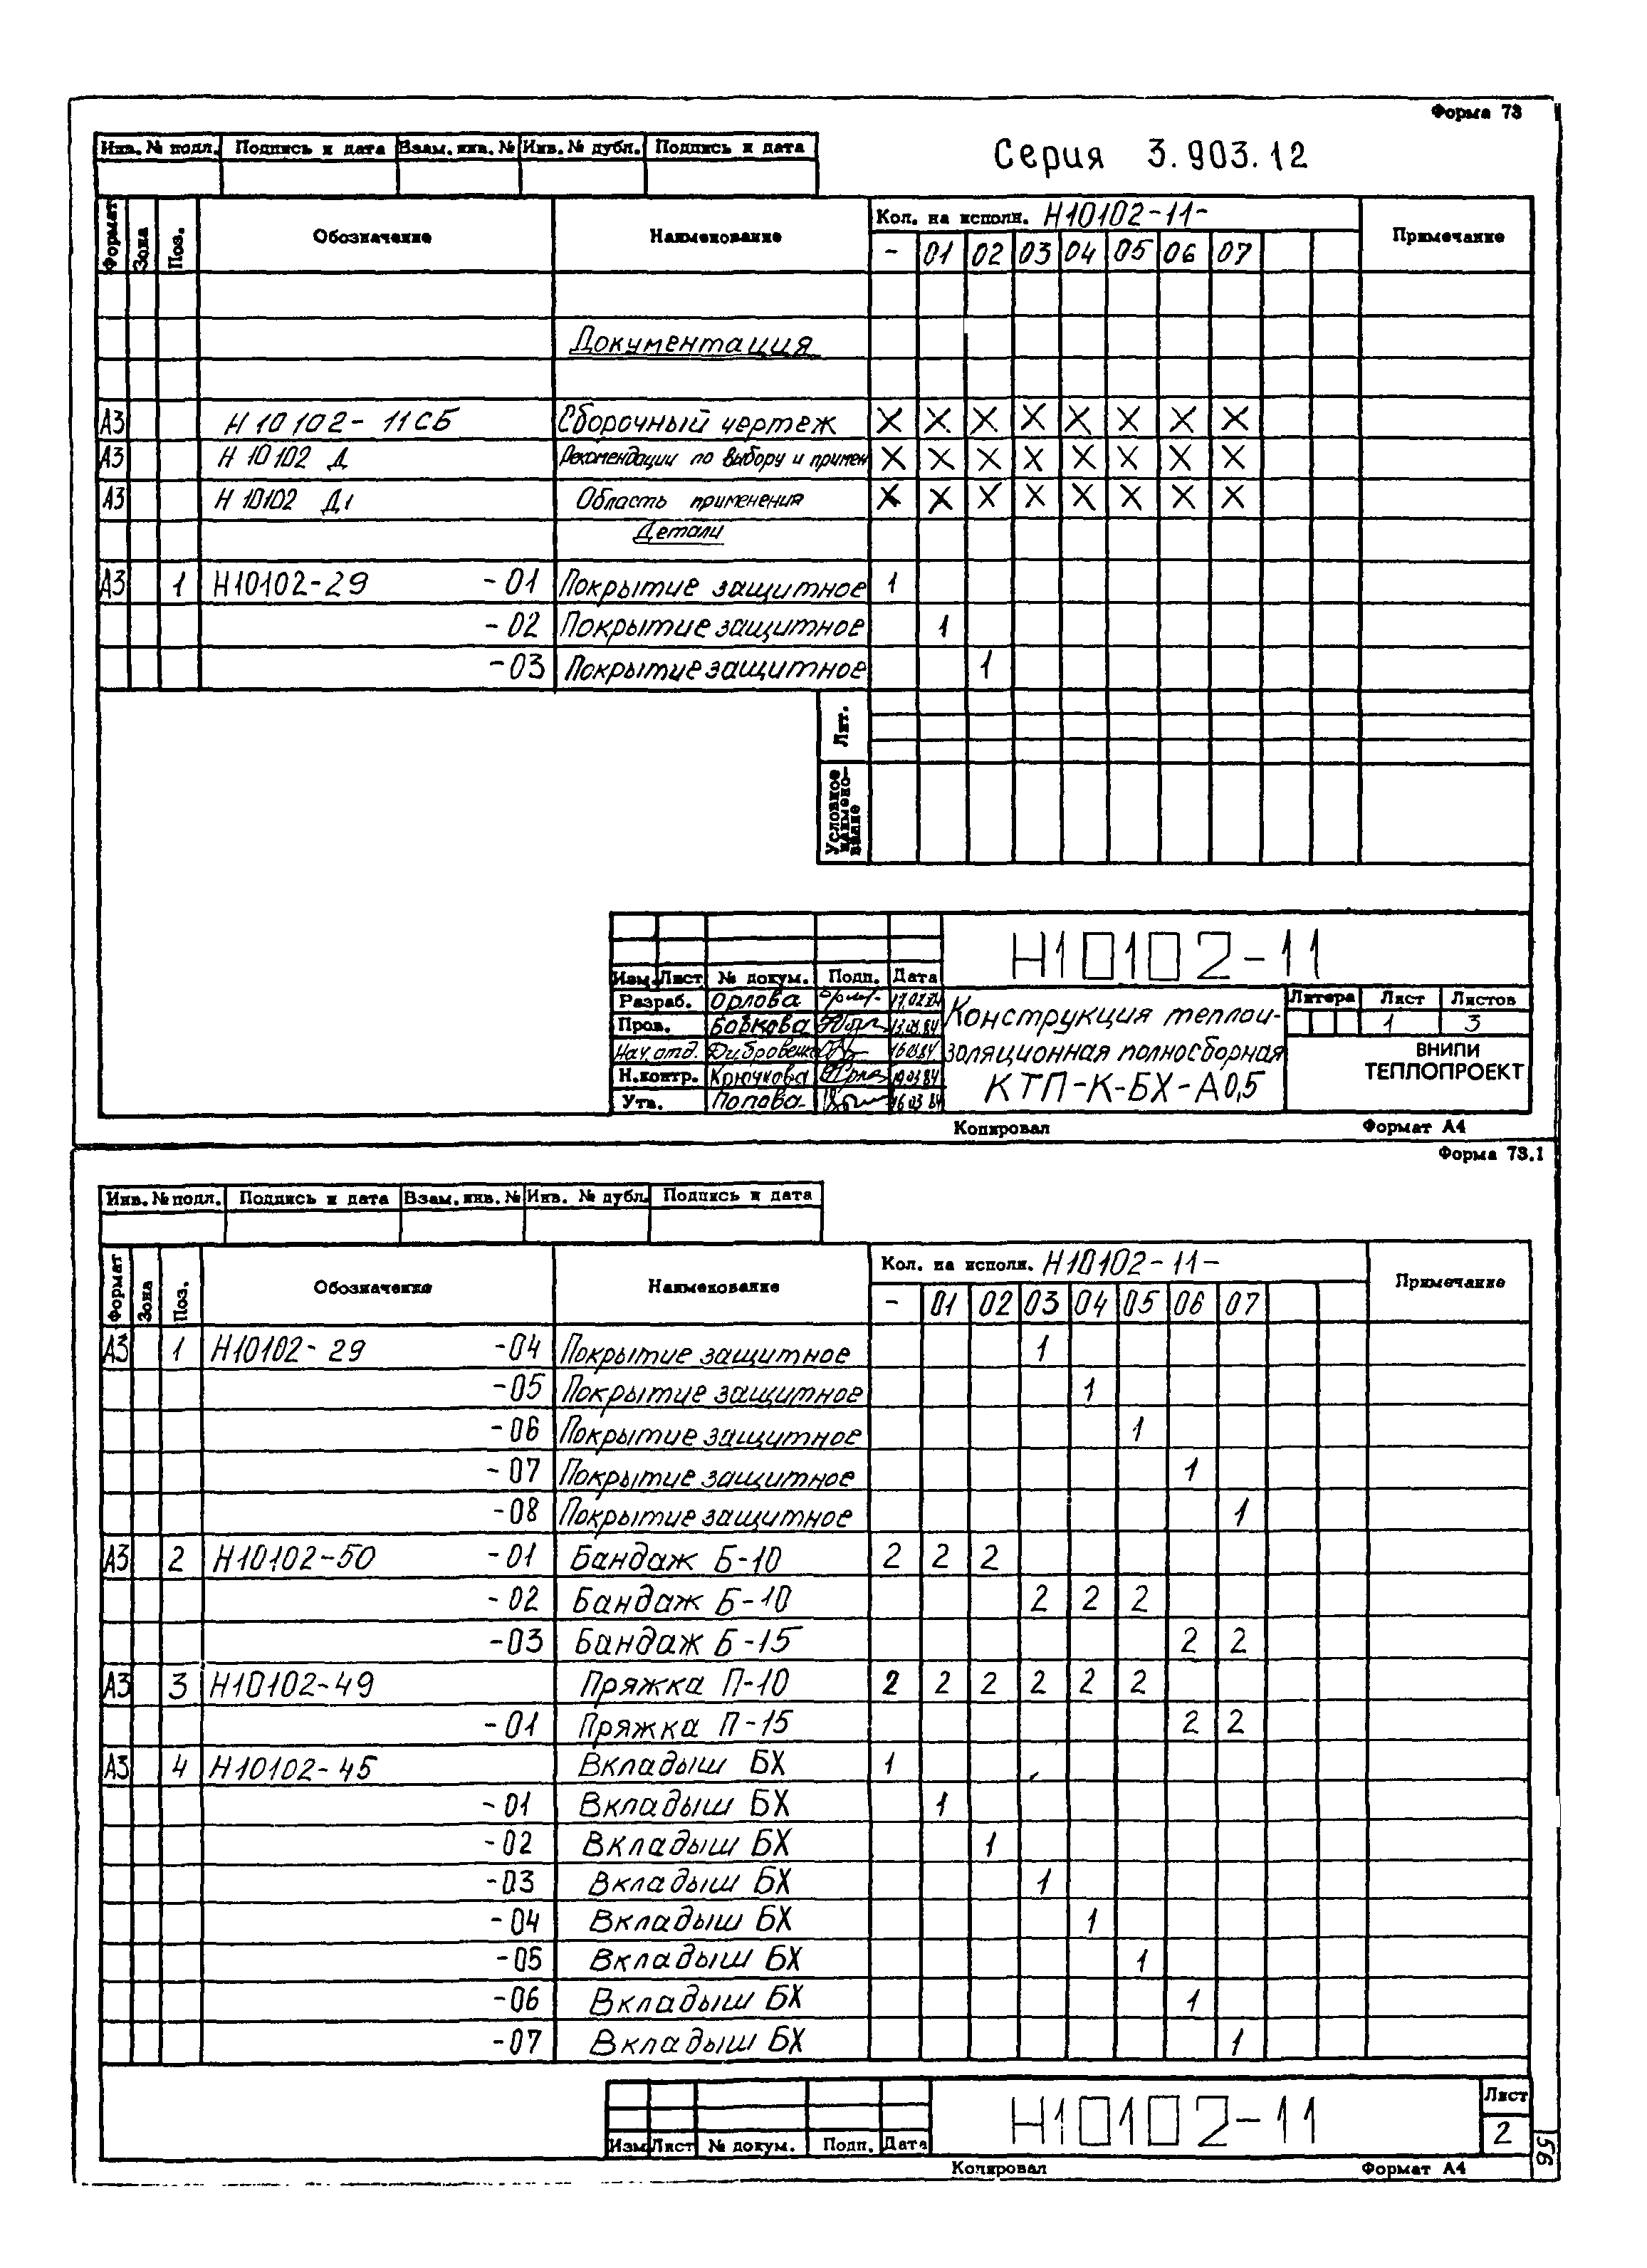 Форма 73
Инв. № подл. Подпись и дата Взам. инв. № Инв. № дубл. Подпись и дата
Серия 3.903.12
Формат Зона Поз. Обозначение Наименование Кол. на исполн. Н10102-11- Примечание
- 01 02 03 04 05 06 07
Документация
А3 Н10102-11СБ Сборочный чертеж X X X X X X X X
А3 Н10102 Д Рекомендации по выбору и примен X X X X X X X X
А3 Н10102 Д1 Область применения X X X X X X X X
Детали
А3 1 Н10102-29 -01 Покрытие защитное 1
-02 Покрытие защитное 1
-03 Покрытие защитное 1
Лит.
Условное наимено-вание
Н10102-11
Изм. Лист № докум. Подп. Дата
Разраб. Орлова 17.02.84
Пров. Бобкова 13.03.84
Нач. отд. 16.03.84
Н.контр. Крючкова 19.03.84
Утв. Попова 16.03.84
Конструкция теплои-
золяционная полносборная
КТП-К-БХ-А0,5
Литера Лист Листов
1 3
ВНИПИ
ТЕПЛОПРОЕКТ
Копировал Формат А4
Форма 73.1
Инв. № подл. Подпись и дата Взам. инв. № Инв. № дубл. Подпись и дата
Формат Зона Поз. Обозначение Наименование Кол. на исполн. Н10102-11- Примечание
- 01 02 03 04 05 06 07
А3 1 Н10102-29 -04 Покрытие защитное 1
-05 Покрытие защитное 1
-06 Покрытие защитное 1
-07 Покрытие защитное 1
-08 Покрытие защитное 1
А3 2 Н10102-50 -01 Бандаж Б-10 2 2 2
-02 Бандаж Б-10 2 2 2
-03 Бандаж Б-15 2 2
А3 3 Н10102-49 Пряжка П-10 2 2 2 2 2 2
-01 Пряжка П-15 2 2
А3 4 Н10102-45 Вкладыш БХ 1
-01 Вкладыш БХ 1
-02 Вкладыш БХ 1
-03 Вкладыш БХ 1
-04 Вкладыш БХ 1
-05 Вкладыш БХ 1
-06 Вкладыш БХ 1
-07 Вкладыш БХ 1
Изм Лист № докум. Подп. Дата
Н10102-11
Лист
2
56
Копировал Формат А4